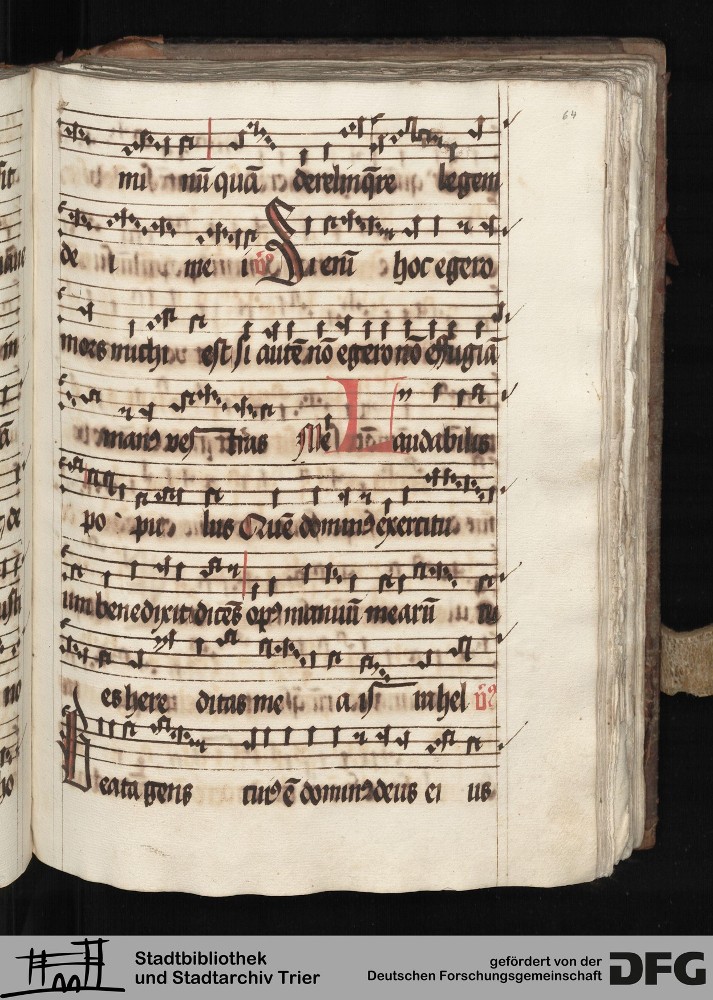 64
mi nū quā derelinq̄re legem
de i me i v̄ꝰ Si eni hoc egero
mors michi est si autē nō egero nō effugiā
manꝰ ves tras Me Laudabilis
po pu lus Quē dominꝰ exercitu
um benedixit dicēs opꝰ manuū mearū tu
es here ditas me a is rahel v̄ꝰ
Beata gens cuiꝰ ē dominꝰ deus ei us
Stadtbibliothek
und Stadtarchiv Trier
gefördert von der
Deutschen Forschungsgemeinschaft
DFG